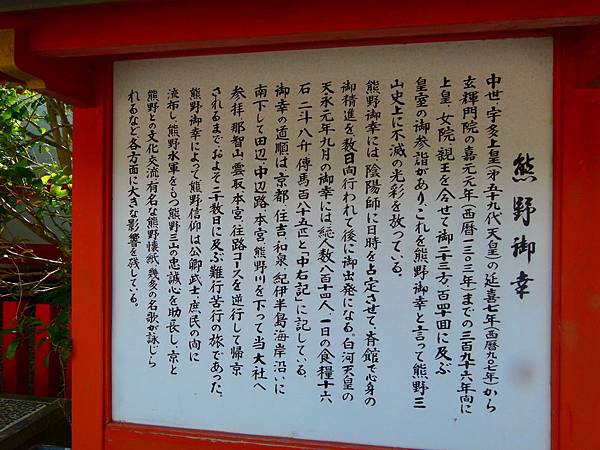 熊野御幸
中世、宇多上皇(第五十九代天皇)の延喜七年(西暦九〇七年)から
玄輝門院の嘉元元年(西暦一三〇三年)までの三百九十六年間に
上皇、女院、親王を合せて御二十三方、百四十回に及ぶ
皇室の御参詣があり、これを熊野御幸と言って熊野三
山史上に不滅の光彩を放っている。
熊野御幸には、陰陽師に日時を占定させて、斉館で心身の
御精進を、数日間行われて後に御出発になる。白河天皇の
天永元年九月の御幸には総人数八百十四人、一日の食糧十六
石二斗八升、傳馬百八十五匹と「中右記」に記している。
御幸の道順は、京都、住吉、和泉、紀伊半島海岸沿いに
南下して田辺、中辺路、本宮、熊野川を下って当大社へ
参拝、那智山、雲取、本宮、往路コースを逆行して帰京
されるまで、およそ二十数日に及ぶ難行苦行の旅であった。
熊野御幸によって熊野信仰は公卿、武士、庶民の間に
流布し、熊野水軍をもつ熊野三山の忠誠心を助長し、京と
熊野との文化交流、有名な熊野懐紙、幾多の名歌が詠じら
れるなど各方面に大きな影響を残している。